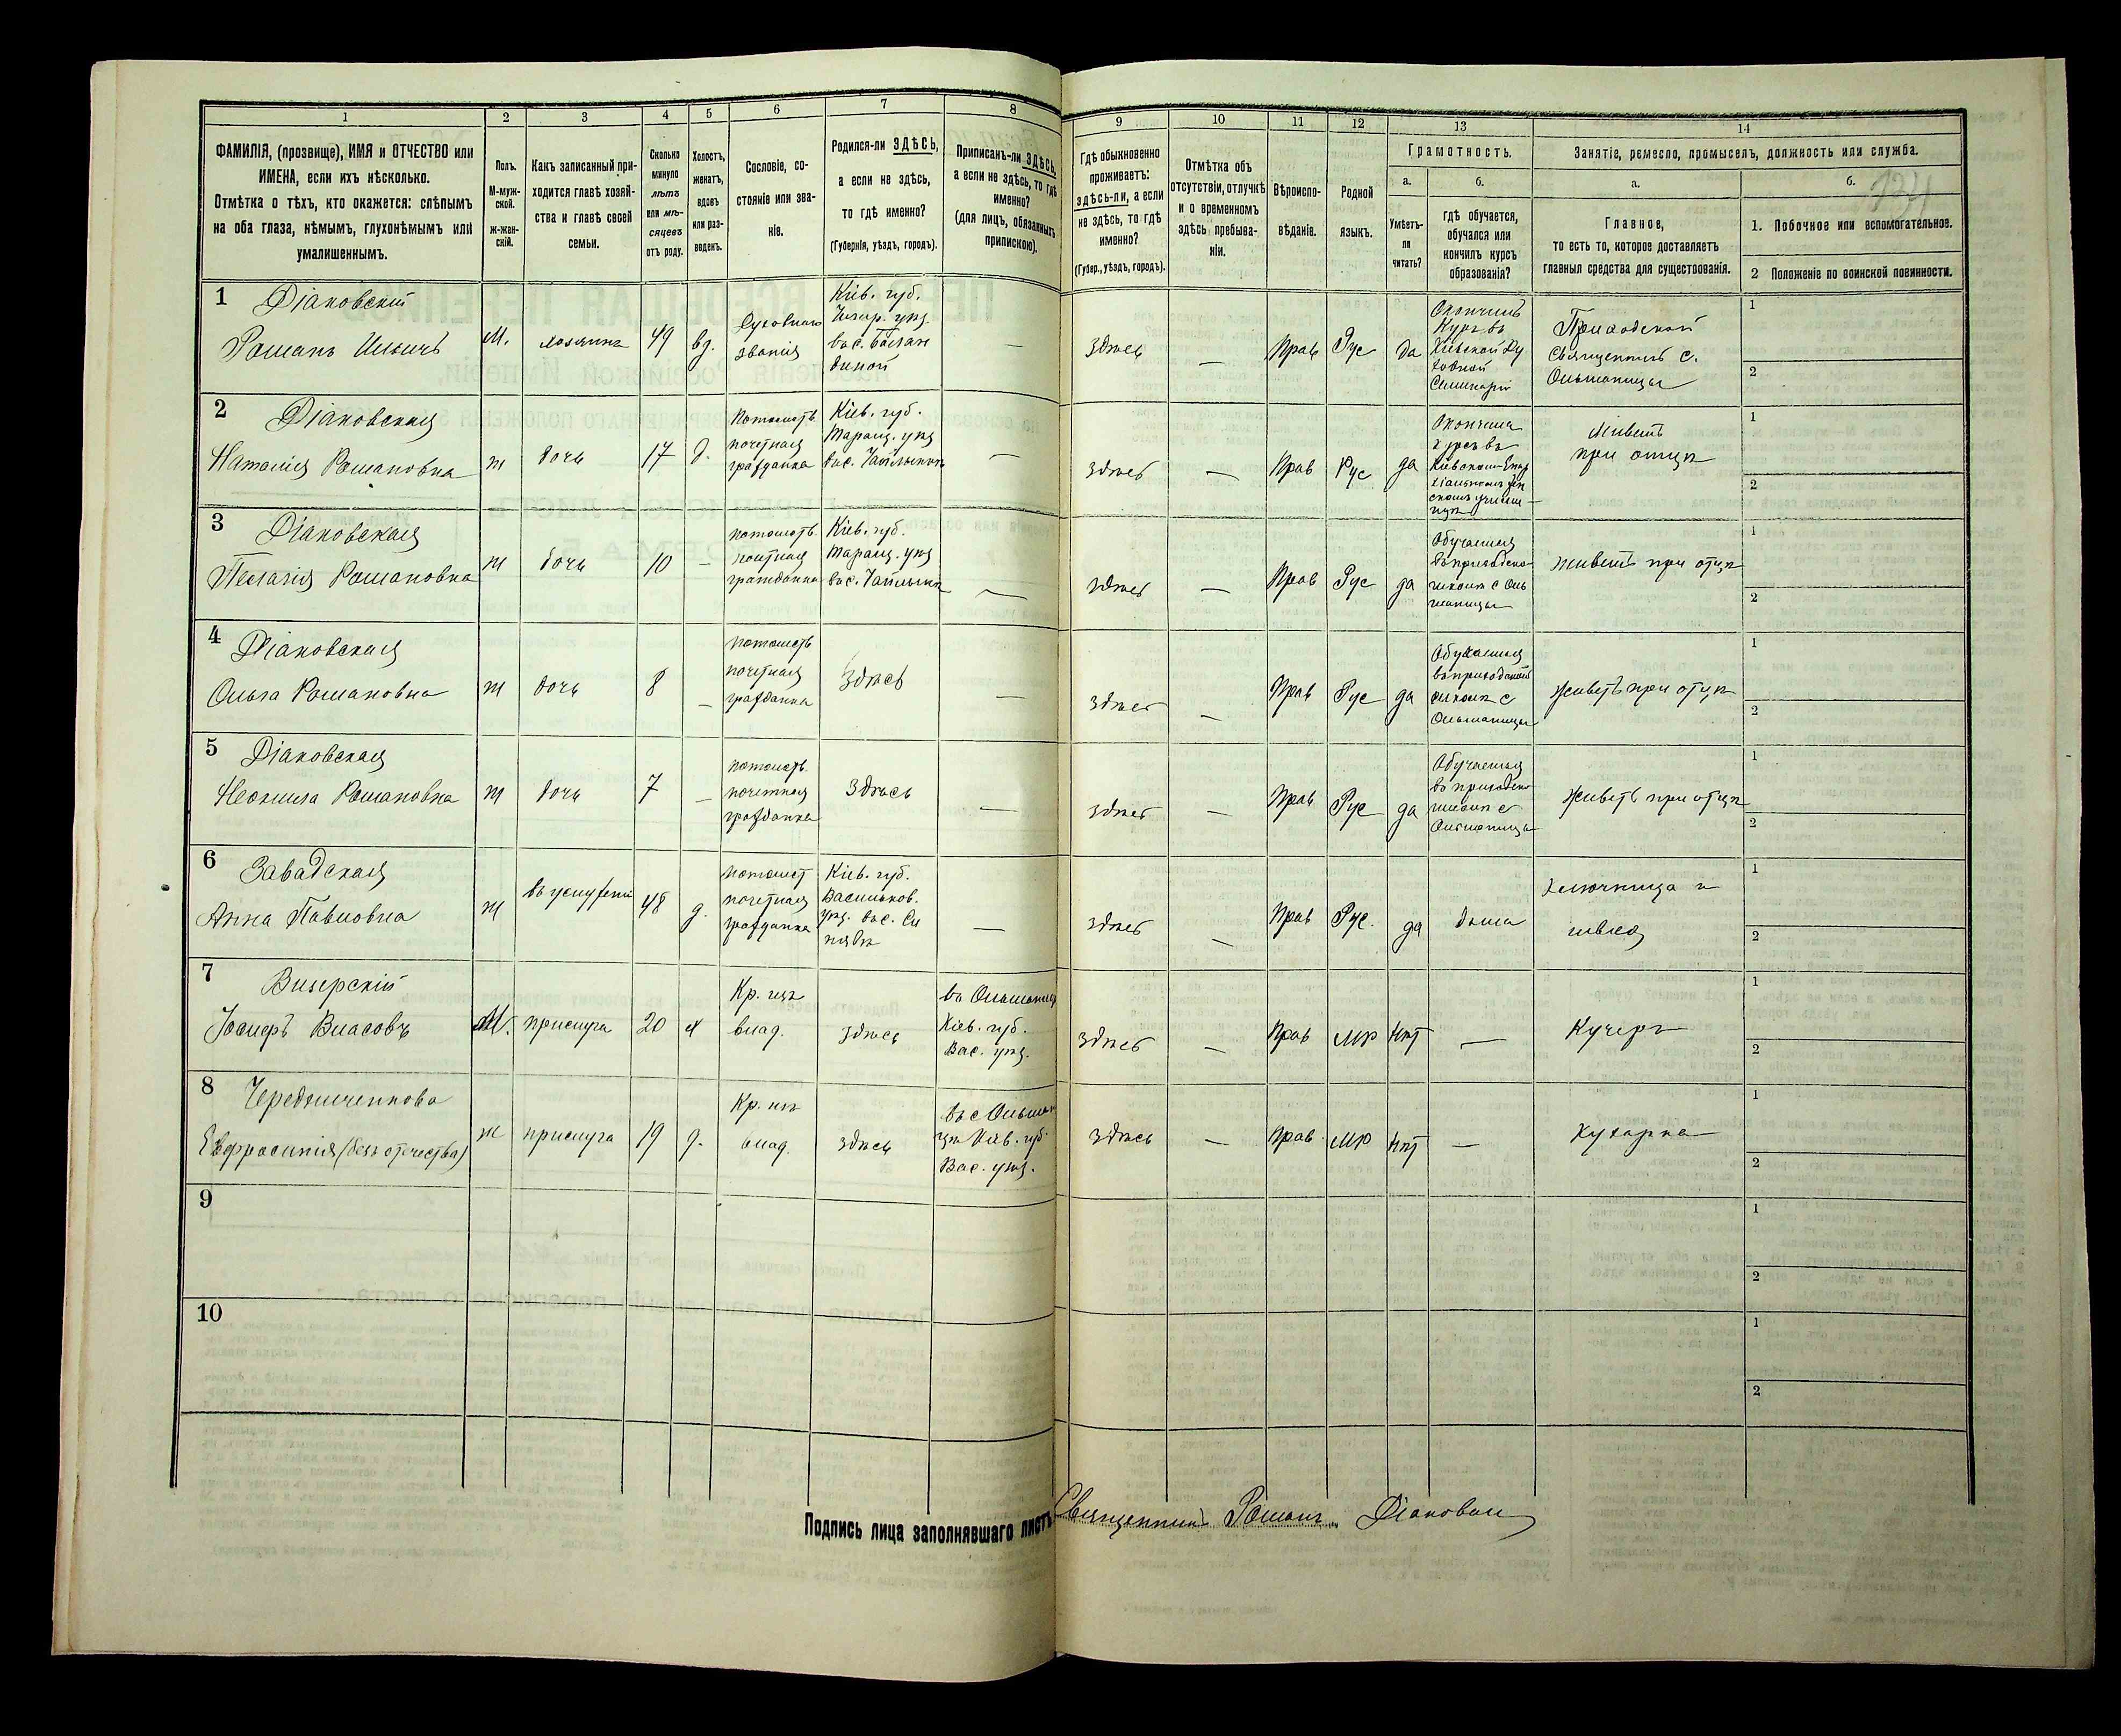 1
2
3
4
5
6
7
8
ФАМИЛІЯ, (прозвище), ИМЯ и ОТЧЕСТВО или
ИМЕНА, если ихъ нѣсколько.
Отмѣтка о тѣхъ, кто окажется: слѣпымъ
на оба глаза, нѣмымъ, глухонѣмымъ или
умалишеннымъ.
Полъ.
М-муж-
ской.
Ж-жен-
скій.
Какъ записанный при-
ходится главѣ хозяй-
ства и главѣ своей
семьи.
Сколько
минуло
лѣтъ
или мѣ-
сяцевъ
отъ роду.
Холостъ,
женатъ,
вдовъ
или раз-
веденъ.
Сословіе, со-
стояніе или зва-
ніе.
Родился-ли ЗДѢСЬ,
а если не здѣсь,
то гдѣ именно?
(Губернія, уѣздъ, городъ).
Приписанъ-ли ЗДѢСЬ,
а если не здѣсь, то гдѣ
именно?
(для лицъ, обязанныхъ
припискою).
9
10
11
12
13
14
Гдѣ обыкновенно
проживаетъ:
здѣсь-ли, а если
не здѣсь, то гдѣ
именно?
(Губер., уѣздъ, городъ).
Отмѣтка объ
отсутствіи, отлучкѣ
и о временномъ
здѣсь пребыва-
ніи.
Вѣроиспо-
вѣданіе.
Родной
языкъ.
Грамотность.
а.
Умѣетъ-
ли
читать?
б.
гдѣ обучается,
обучался или
кончилъ курсъ
образованія?
Занятіе, ремесло, промыселъ, должность или служба.
а.
Главное,
то есть то, которое доставляетъ
главныя средства для существованія.
б.
1. Побочное или вспомогательное.
2 Положеніе по воинской повинности.
1 Діаковскій
Романъ Ильичъ
М.
хозяинъ
49
вд.
Духовнаго
званія
Кіев. губ.
въ с.
—
Здѣсь
—
Прав
Рус
Да
Окончилъ
Курсъ въ
Кіевской Ду
ховной
Семинаріи
Приходской
Священникъ с.
Ольшаницы
1
2
2 Діаковская
Наталія Романовна
ж
дочь
17
д.
потомств.
почетная
гражданка
Кіев. губ.
Таращ. уѣз
въ с.
—
здѣсь
—
Прав
Рус
да
Окончила
курсъ въ
Кіевскомъ Епар
хіальномъ жен
скомъ учили-
щѣ
Живетъ
при отцѣ
1
2
3 Діаковская
Пелагія Романовна
ж
дочь
10
—
потомств.
почтная
гражданка
Кіев. губ.
Таращ. уѣз
въ с.
—
здѣсь
—
Прав
Рус
да
Обучается
въ приходско
школѣ с Оль
шаницы
живетъ при отцѣ
1
2
4 Діаковская
Ольга Романовна
ж
дочь
8
—
потомств
почетная
гражданка
Здѣсь
—
здѣсь
—
Прав
Рус
да
Обучается
въ приходской
школѣ с
Ольшаницы
живетъ при отцѣ
1
2
5 Діаковская
Неонила Романовна
ж
дочь
7
—
потомств.
почетная
гражданка
Здѣсь
—
здѣсь
—
Прав
Рус
да
Обучается
въ приходско
школѣ с
Ольшаницы
живетъ при отцѣ
1
2
6 Завадская
Анна Павловна
ж
въ услуженіи
48
д.
потомст
почетная
гражданка
Кіев. губ.
Васильков.
уѣз. въ с. Си
нявѣ
—
здѣсь
—
Прав
Рус.
да
дома
Ключница и
швея
1
2
7 Визерскій
Іосифъ Власовъ
М.
прислуга
20
х
Кр. изъ
влад.
здѣсь
въ Ольшаницѣ
Кіев. губ.
Вас. уѣз.
здѣсь
—
Прав
мр
нѣт
—
Кучеръ
1
2
8 Чередниченкова
Евфросинія (безъ отчества)
ж
прислуга
19
д.
Кр. изъ
влад.
здѣсь
въ с Ольшан
цѣ Кіев. губ.
Вас. уѣз.
здѣсь
—
Прав.
мр
нѣт
—
Кухарка
1
2
9
1
2
10
1
2
Подпись лица заполнявшаго листъ Священникъ Романъ Діаковскій